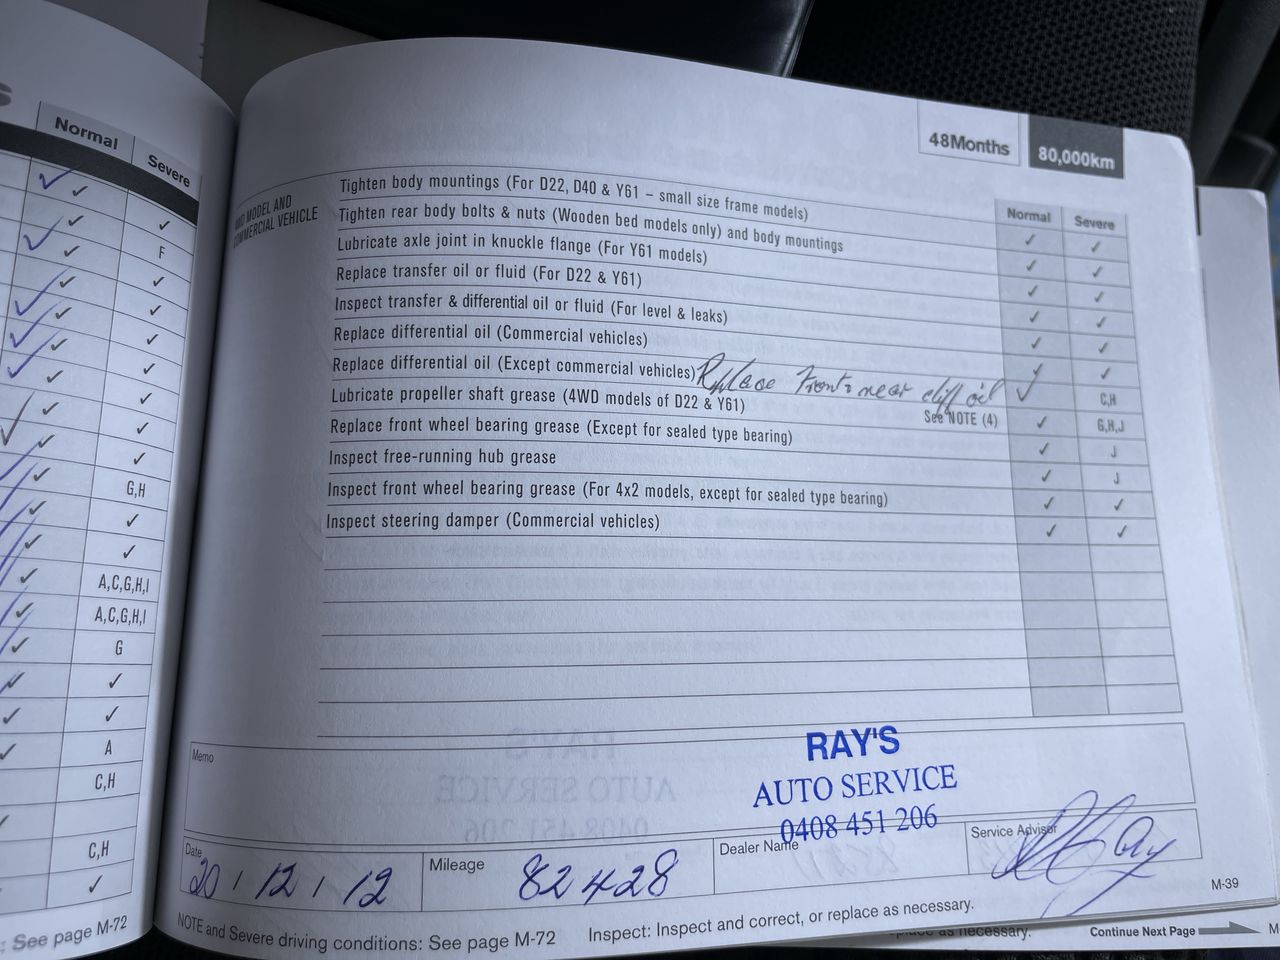 Normal Severe
F
G,H
A,C,G,H,I
A,C,G,H,I
G
A
C,H
C,H
See page M-72
48Months 80,000km
MODEL AND
COMMERCIAL VEHICLE
Normal Severe
Tighten body mountings (For D22, D40 & Y61 – small size frame models) ✓ ✓
Tighten rear body bolts & nuts (Wooden bed models only) and body mountings ✓ ✓
Lubricate axle joint in knuckle flange (For Y61 models) ✓ ✓
Replace transfer oil or fluid (For D22 & Y61) ✓ ✓
Inspect transfer & differential oil or fluid (For level & leaks) ✓ ✓
Replace differential oil (Commercial vehicles) ✓ ✓
Replace differential oil (Except commercial vehicles) Replace Front & rear diff oil ✓ C,H
Lubricate propeller shaft grease (4WD models of D22 & Y61) See NOTE (4) ✓ G,H,J
Replace front wheel bearing grease (Except for sealed type bearing) ✓ J
Inspect free-running hub grease ✓ J
Inspect front wheel bearing grease (For 4x2 models, except for sealed type bearing) ✓ ✓
Inspect steering damper (Commercial vehicles) ✓ ✓
Memo
RAY'S
AUTO SERVICE
0408 451 206
Date 20 / 12 / 12
Mileage 82428
Dealer Name
Service Advisor
M-39
NOTE and Severe driving conditions: See page M-72 Inspect: Inspect and correct, or replace as necessary.
as necessary.
Continue Next Page